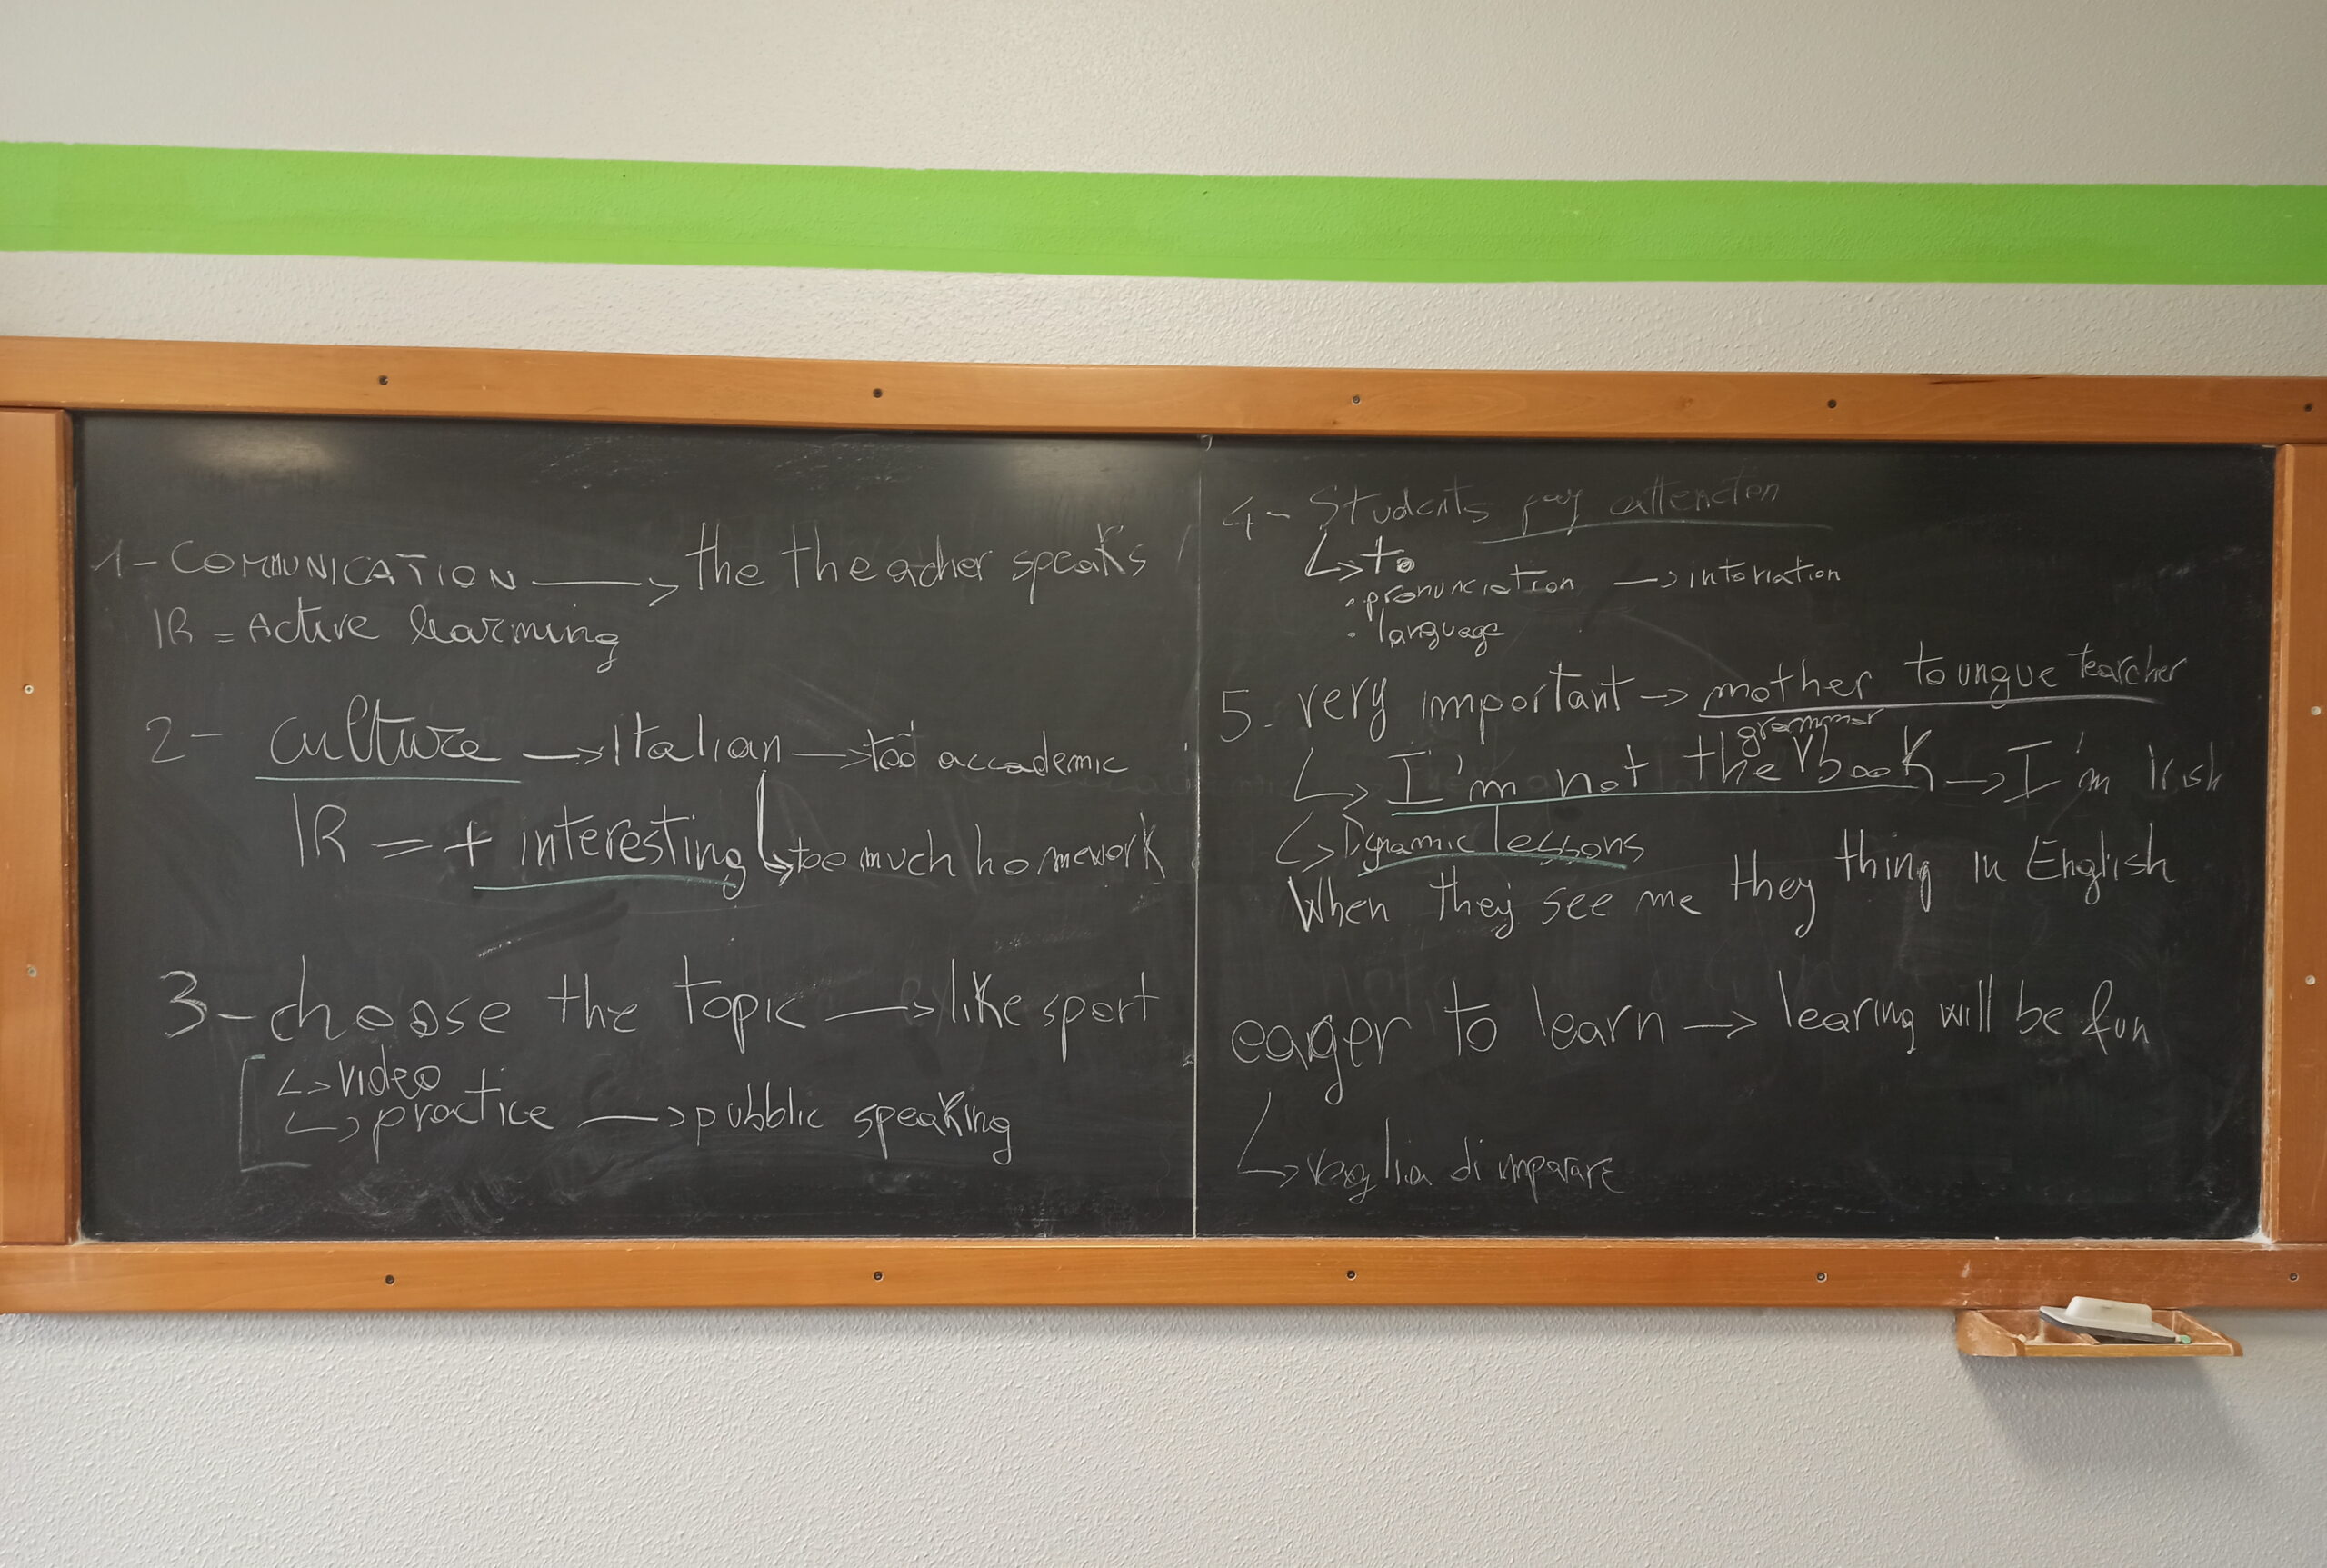 1- COMUNICATION → the theacher speaks
IR = Active learning
2- culture → Italian → too accademic
IR = + interesting ↳ too much homework
3- choose the topic → like sport
↳ video
↳ practice → pubblic speaking
4- Students pay attenction
↳ to
• pronunciation → intonation
• language
5- very important → mother toungue tearcher
grammar
↳ I'm not the book → I'm Irish
↳ Dynamic lessons
When they see me they thing in English
eager to learn → learing will be fun
↳ voglia di imparare